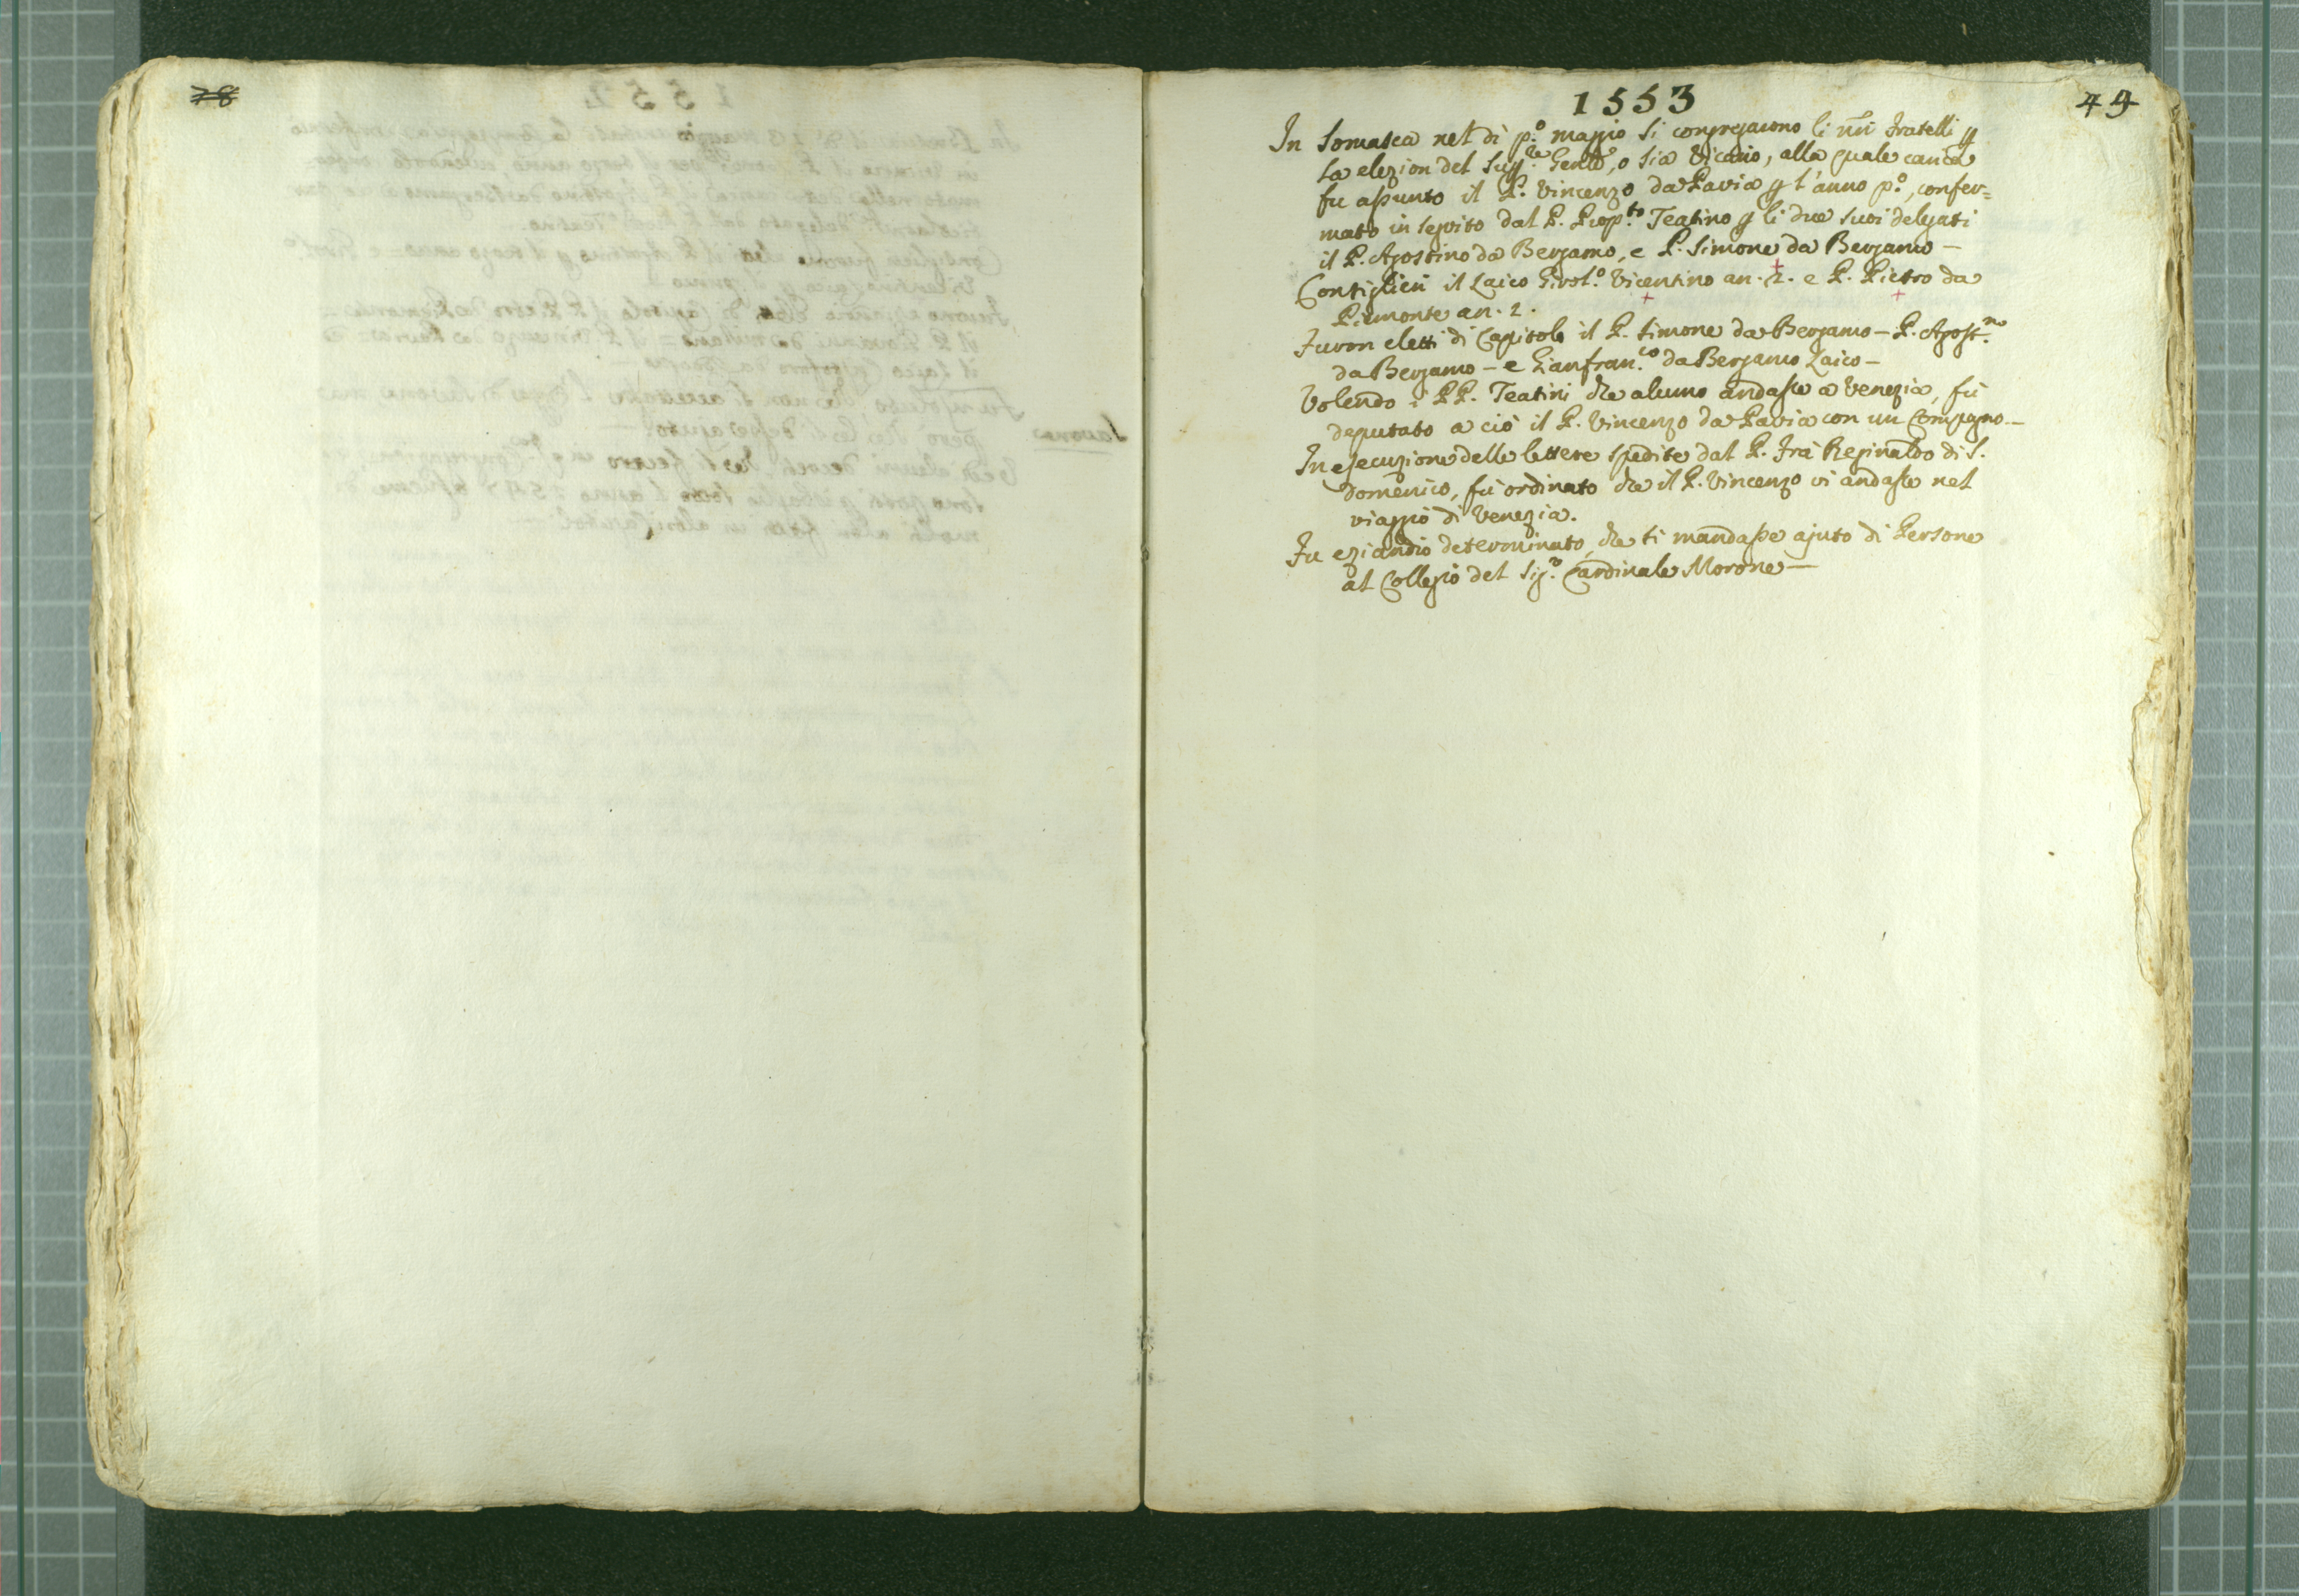 78
1553
49
In Somasca nel dì p.º maggio si congregarono li nr̃i Fratelli p
la elezion del Sup.re Genle, o sia Vicario, alla quale carica
fu assunto il P. Vincenzo da Pavia p l'anno p.º, confer=
mato in seguito dal P. Prop.to Teatino p li due suoi delegati
il P. Agostino da Bergamo, e P. Simone da Bergamo —
Consiglieri il Laico Girol.º Vicentino an. 2. e P. Pietro da
Piemonte an. 2.
Furon eletti di Capitolo il P. Simone da Bergamo — P. Agost.no
da Bergamo — e Gianfran.co da Bergamo Laico —
Volendo i PP. Teatini che alcuno andasse a Venezia, fù
deputato a ciò il P. Vincenzo da Pavia con un Compagno —
In esecuzione delle lettere spedite dal P. Frà Reginaldo di S.
Domenico, fù ordinato che il P. Vincenzo vi andasse nel
viaggio di Venezia.
Fu eziandio determinato, che si mandasse ajuto di Persone
al Collegio del Sig.r Cardinale Morone —